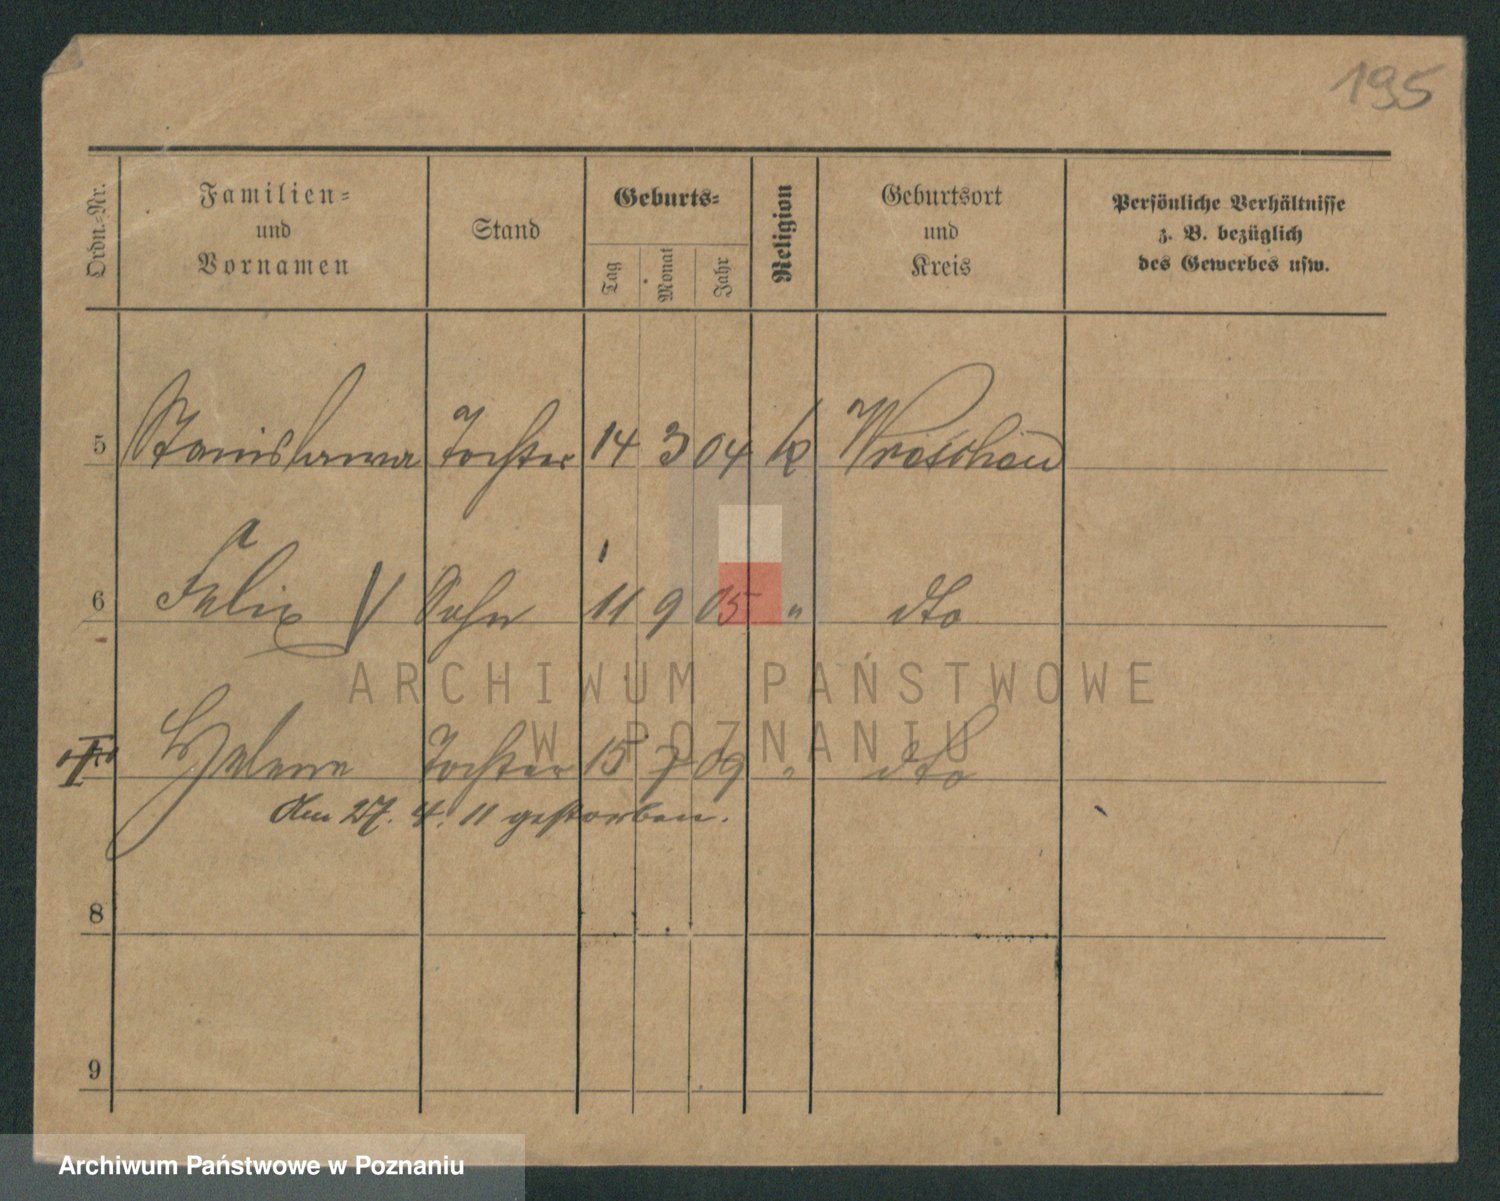 195
Ordn.=Nr.
Familien=
und
Vornamen
Stand
Geburts=
Tag
Monat
Jahr
Religion
Geburtsort
und
Kreis
Persönliche Verhältnisse
z. B. bezüglich
des Gewerbes usw.
5 Stanislawa Tochter 14 3 04 k Wreschen
6 Felix Sohn 11 9 05 " dto
Helene Tochter 15 7 09 " dto
Am 27. 4. 11 gestorben.
8
9
ARCHIWUM PAŃSTWOWE
W POZNANIU
Archiwum Państwowe w Poznaniu